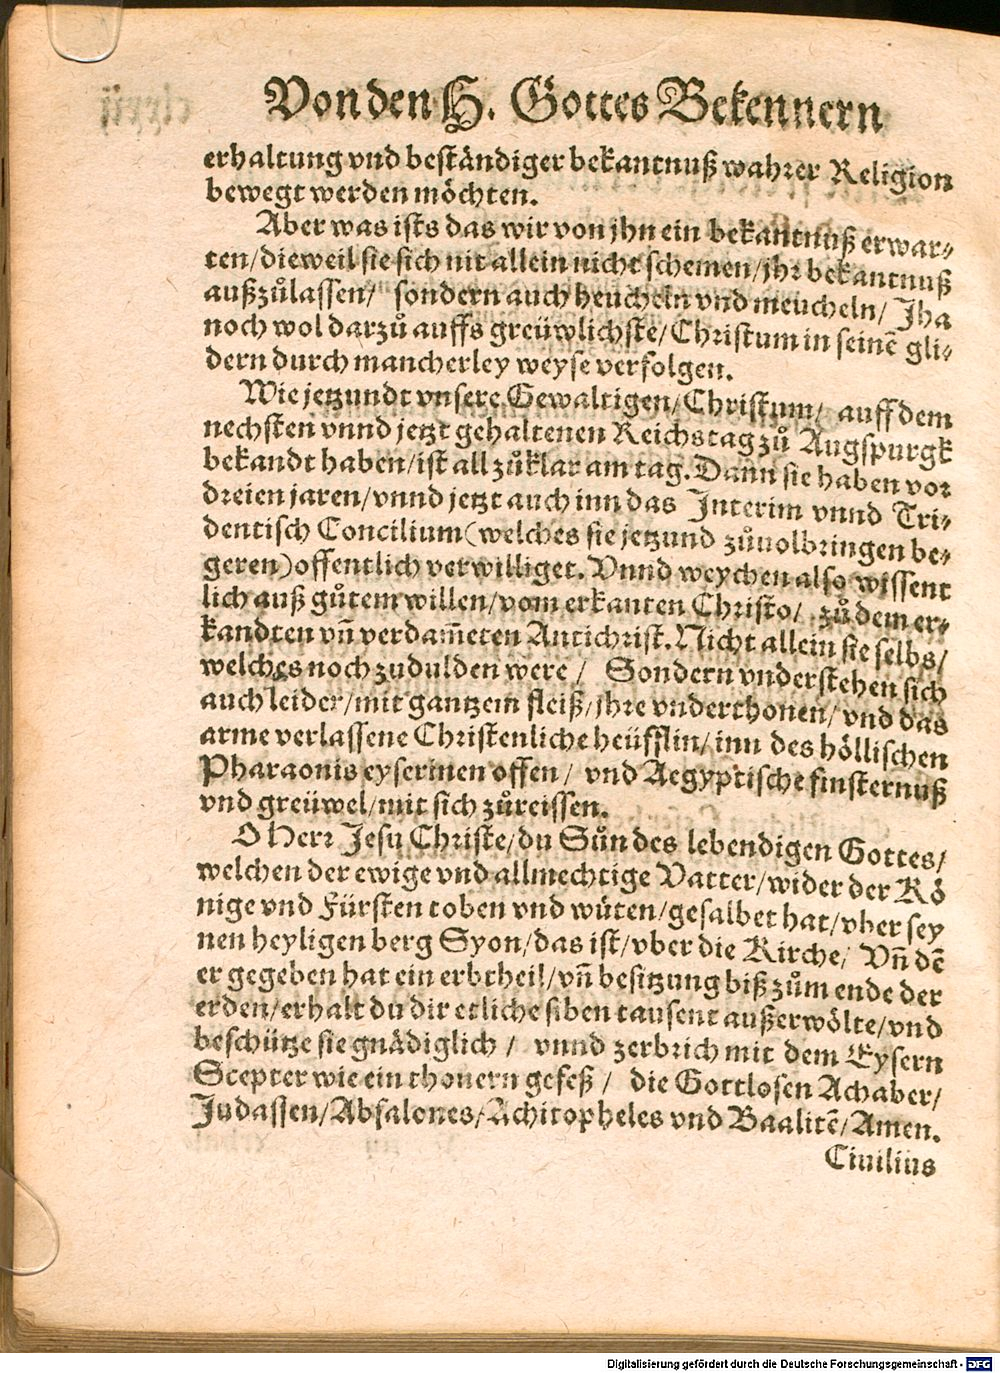 Von den H. Gottes Bekennern
erhaltung vnd beständiger bekantnuß wahrer Religion
bewegt werden möchten.
Aber was ists das wir von jhn ein bekantnuß erwar⸗
ten/dieweil sie sich nit allein nicht schemen/jhr bekantnuß
außzůlassen/ sondern auch heucheln vnd meucheln/ Jha
noch wol darzů auffs greüwlichste/Christum in seinē gli⸗
dern durch mancherley weyse verfolgen.
Wie jetzundt vnsere Gewaltigen/Christum/ auff dem
nechsten vnnd jetzt gehaltenen Reichstag zů Augspurgk
bekandt haben/ist all zůklar am tag. Dann sie haben vor
dreien jaren/vnnd jetzt auch inn das Interim vnnd Tri⸗
dentisch Concilium (welches sie jetzund zůuolbringen be⸗
geren) offentlich verwilliget. Vnnd weychen also wissent
lich auß gůtem willen/vom erkanten Christo/ zů dem er⸗
kandten vñ verdam̄eten Antichrist. Nicht allein sie selbs/
welches noch zudulden were / Sondern vnderstehen sich
auch leider/mit gantzem fleiß/jhre vnderthonen/vnd das
arme verlassene Christenliche heüfflin/inn des höllischen
Pharaonis eyserinen offen / vnd Aegyptische finsternuß
vnd greüwel/mit sich zůreissen.
O Herr Jesu Christe/du Sůn des lebendigen Gottes/
welchen der ewige vnd allmechtige Vatter/wider der Kö
nige vnd Fürsten toben vnd wüten/gesalbet hat/vber sey
nen heyligen berg Syon/das ist/vber die Kirche/ Vñ dē
er gegeben hat ein erbtheil/vñ besitzung biß zům ende der
erden/erhalt du dir etliche siben tausent außerwölte/vnd
beschütze sie gnädiglich / vnnd zerbrich mit dem Eysern
Scepter wie ein thonern gefeß / die Gottlosen Achaber/
Judassen/Absalones/Achitopheles vnd Baalitē/Amen.
Ciuilius
Digitalisierung gefördert durch die Deutsche Forschungsgemeinschaft - DFG